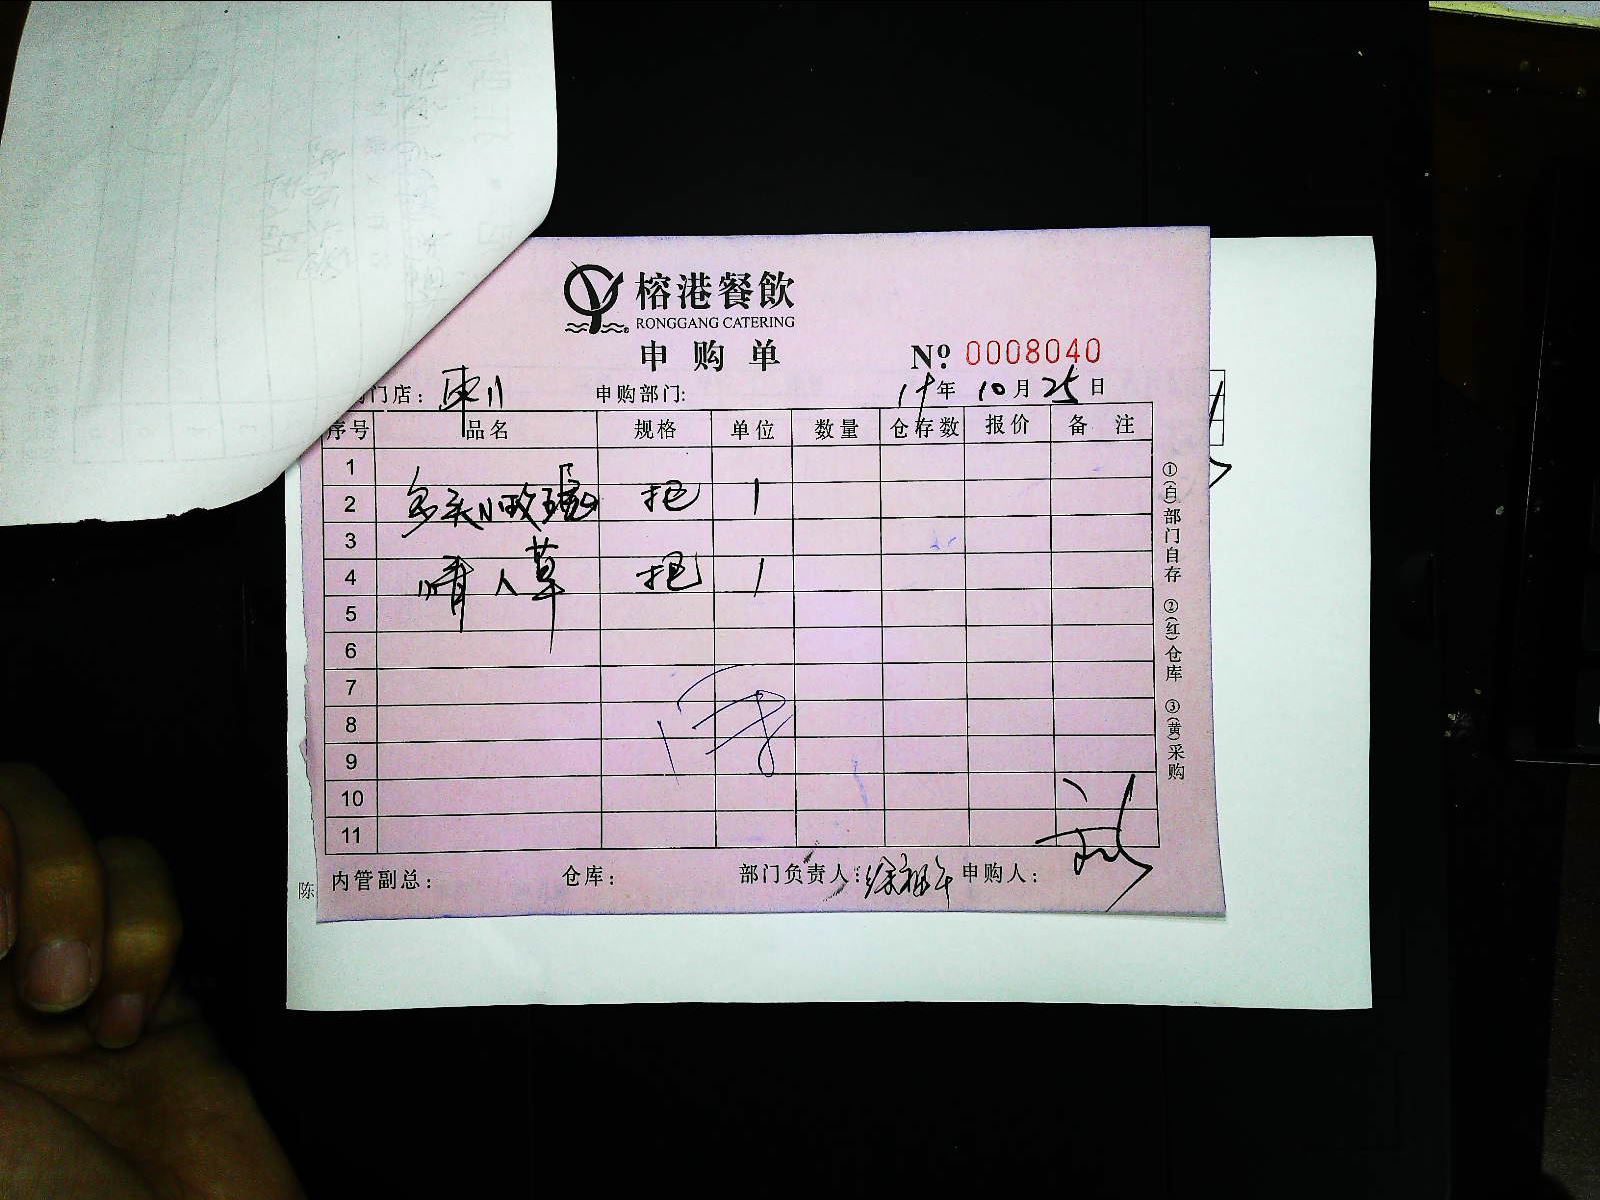 榕港餐飲
RONGGANG CATERING
申购单
№ 0008040
门店： 申购部门: 年 10 月 25 日
序号 品名 规格 单位 数量 仓存数 报价 备注
1
2 多头小玫瑰 把 1
3
4 情人草 把 1
5
6
7
8
9
10
11
内管副总： 仓库： 部门负责人： 申购人：
①(白)部门自存 ②(红)仓库 ③(黄)采购
陈